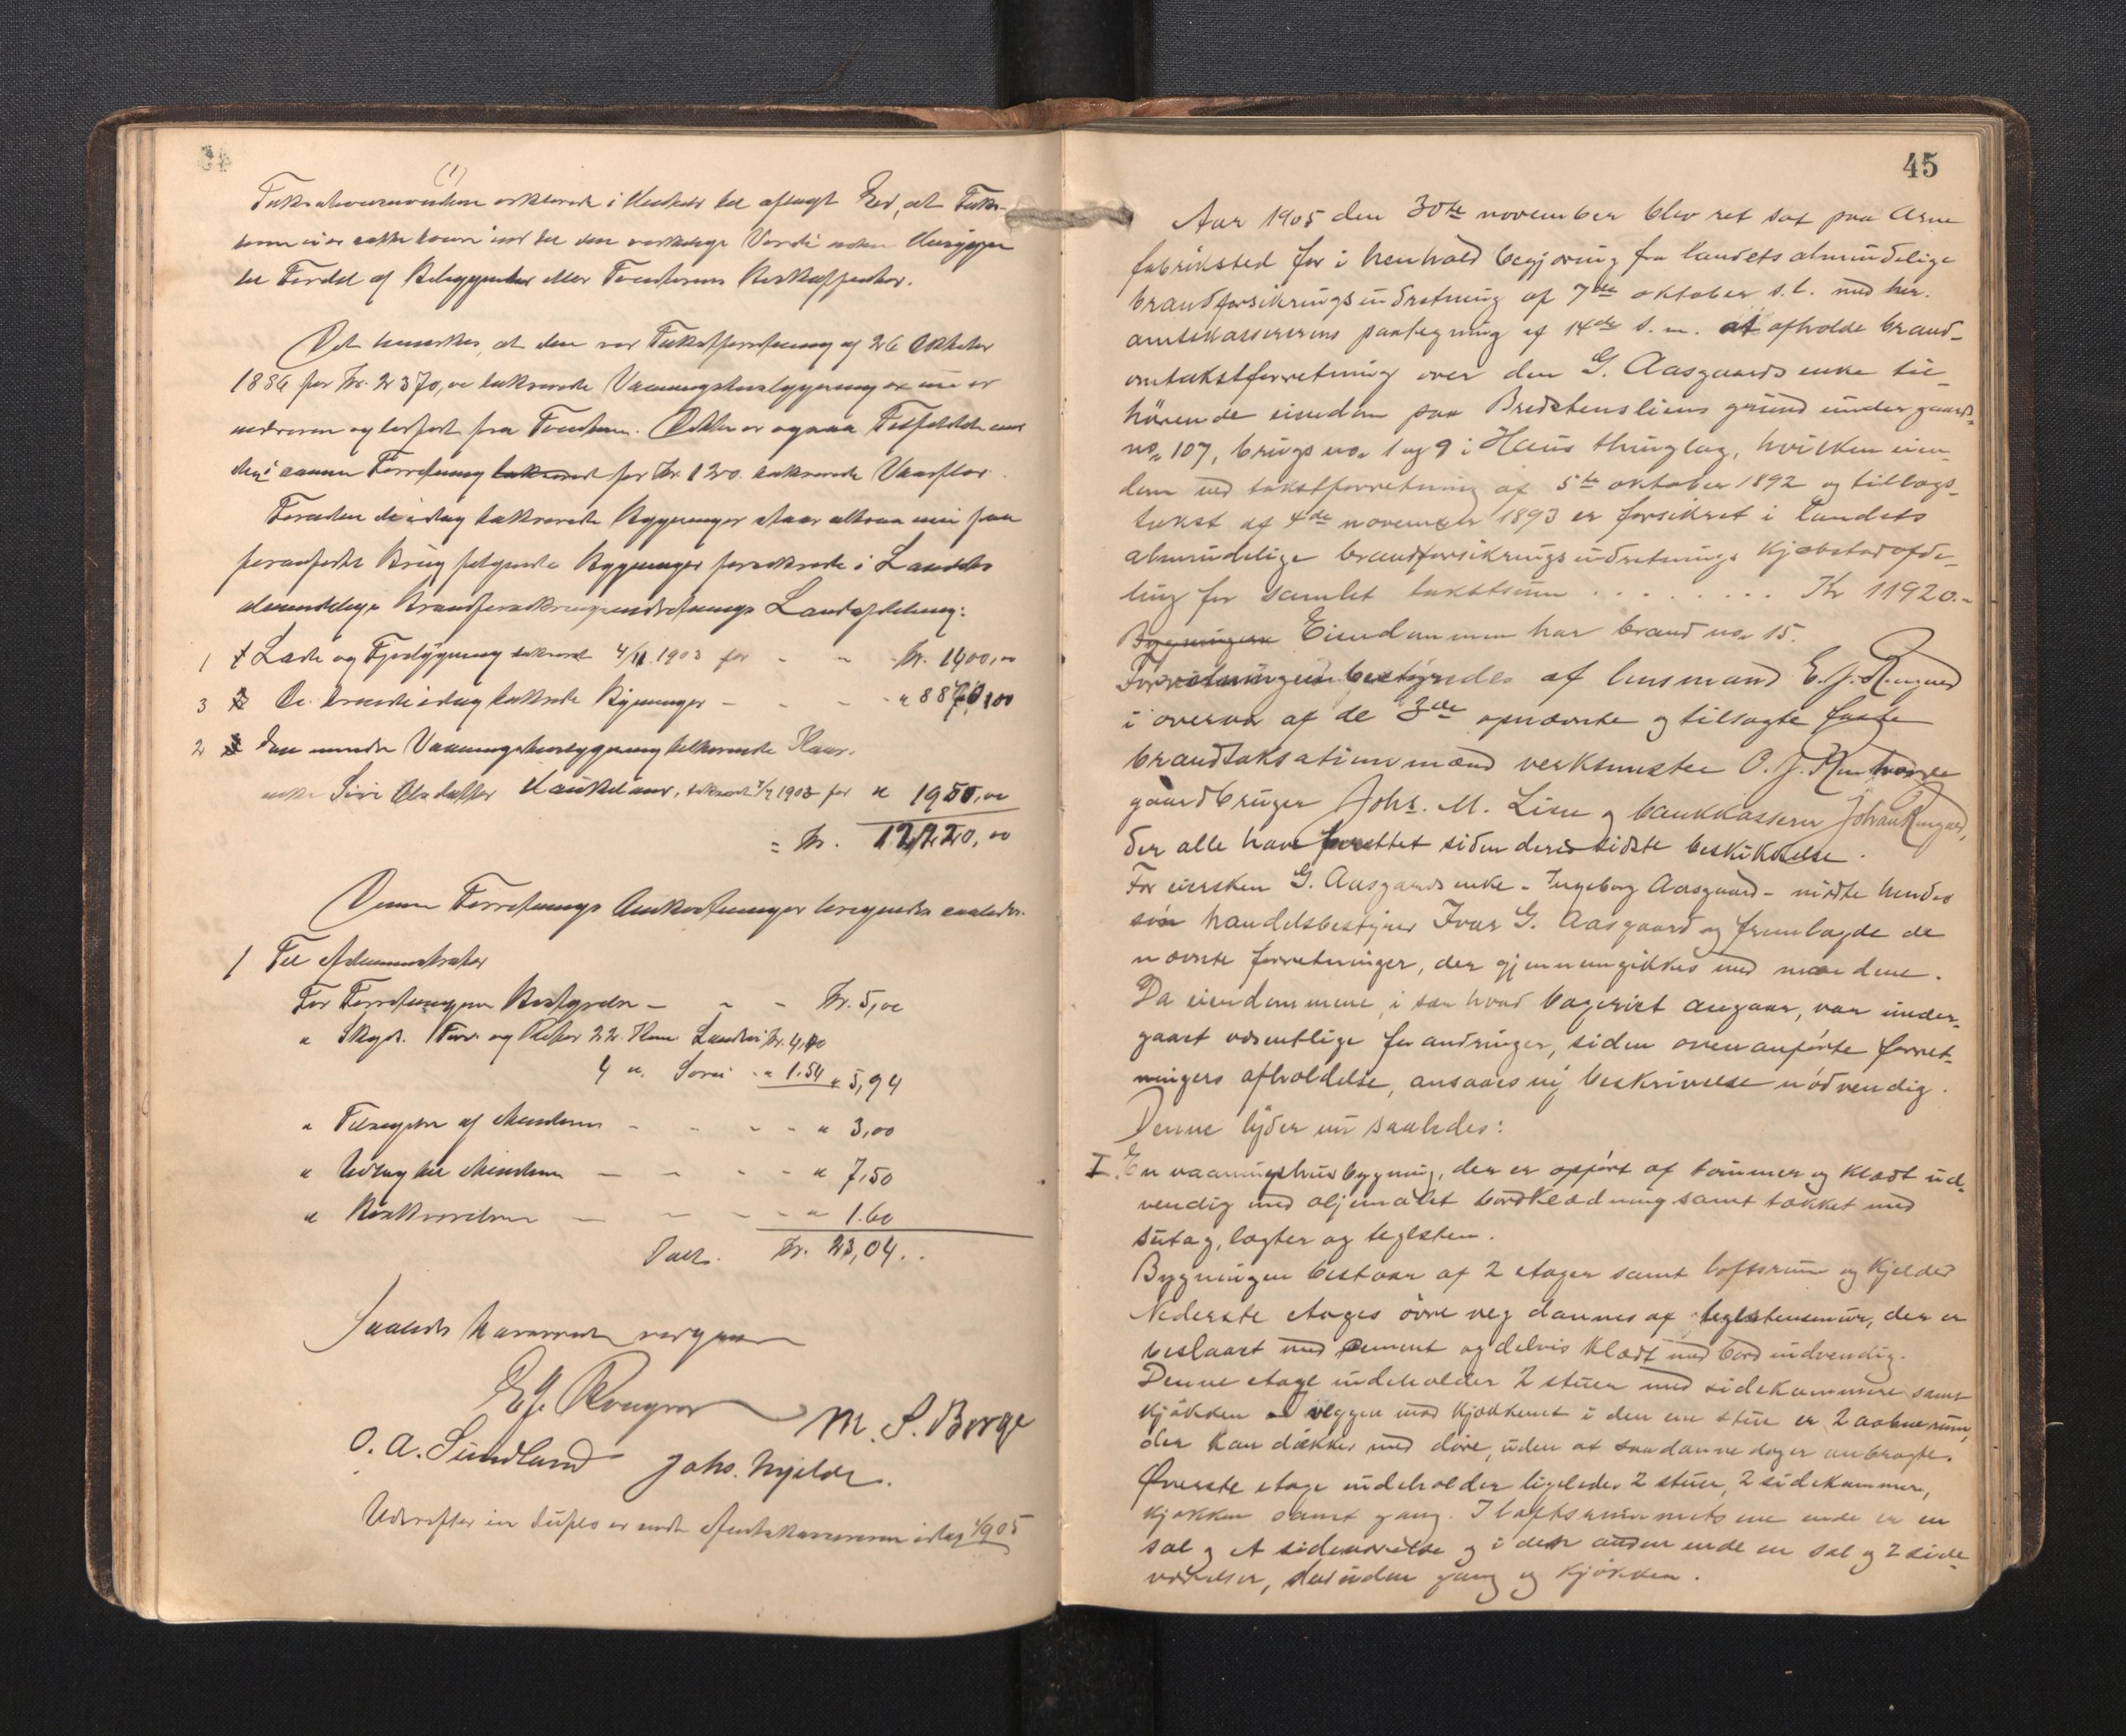 (1)
Taksationsmændene erklærede i Henhold til aflagt Ed, at Taksterne ei er satte høiere end til den virkelige Værdi uden Hensyn
til Fordel af Beliggenhed eller Tomternes Beskaffenhed.
Det bemærkes, at den ved Takstforretning af 26 Oktober
1886 for Kr. 2370,00 takserede Vaaningshusbygning nu er
nedreven og bortført fra Tomten. Dette er ogsaa Tilfældet med
den i samme Forretning for Kr 120. takserede
Foruden de idag takserede Bygninger staar altsaa nu paa
foranførte Brug følgende Bygninger forsikrede i Landets
almindelige Brandforsikringsindretnings Landafdeling:
1 Lade og Fjøsbygning takseret 4/11 1903 for - - Kr. 1400,00
3 De herved idag takserede Bygninger - - - " 8870,00
2 den mindre Vaaningshusbygning tilhørende
enke Siri Olsdatter Haukelaur, takseret 1903 for " 1950,00
= Kr. 12220,00
Denne Forretnings Omkostninger beregnedes saaledes:
1 Til Administrator
For Forretningens Bestyrelse - - - Kr. 5,00
" Skyds. Frem og Retur 22 Km. Landvei Kr. 4,40
4 " Søvei - " 1.54 " 5,94
" Tilsigelse af Mændene - - - - " 3,00
" Udlæg til Mændene - - - - " 7,50
" Beskrivelsen - - - - " 1.60
Tils. Kr. 23,04.
Saaledes passeret
E.J. Rongved M. S. Borge
O. A. Sundland Johs. Mjelde.
Udskrift in duplo er sendt Amtskassereren idag 05
45
Aar 1905 den 30te november blev ret sat paa Arne
fabriksted for i henhold begjæring fra landets almindelige
brandforsikringsindretning af 7de oktober d.a. med her.
amtskassererens paategning af 14de s. m. at afholde brand-
omtakstforretning over den G. Aasgaards enke til-
hørende eiendom paa Bredstensliens grund under gaards-
no. 107, brugs no. 1 og 9 i Haus thinglag, hvilken eien-
dom ved takstforretning af 5te oktober 1892 og tillægs-
takst af 4de november 1893 er forsikret i Landets
almindelige brandforsikringsindretnings Kjøbstadafde-
ling for samlet takstsum . . . . . . . . Kr 11920.-
Bygningen Eiendommen har brand no. 15.
Forretningen bestyredes af lensmand E. J. Rongved
i overvær af de 3de opnævnte og tilsagte faste
brandtaksationsmænd verksmester O. J.
gaardbruger Johs. M. Lien og bankkasserer Johan Rongved,
der alle have forrettet siden deres sidste beskikkelse.
For eiersken G. Aasgaards enke - Ingeborg Aasgaard - mødte hendes
søn handelsbestyrer Ivar G. Aasgaard og fremlagde de
nævnte forretninger, der gjennemgikkes med mændene.
Da eiendommene, især hvad bageriet angaar, var under-
gaaet væsentlige forandringer, siden ovenanførte forret-
ningers afholdelse, ansaaes ny beskrivelse nødvendig.
Denne lyder nu saaledes:
I. En vaaningshusbygning, der er opført af tømmer og klædt ud-
vendig med oljemalet bordklædning samt tækket med
sutag, lægter og teglsten.
Bygningen bestaar af 2 etager samt loftsrum og kjelder
Nederste etages øvre veg dannes af teglstensmur, der er
beslaaet med cement og delvis klædt med bord indvendig.
Denne etage indeholder 2 stuer med sidekammere samt
kjøkken. I væggen mod kjøkkenet i den ene stue er 2 aabne rum,
der kan dækkes med døre, uden at saadanne da er anbragte.
Øverste etage indeholder ligeledes 2 stuer, 2 sidekammere,
kjøkken samt gang. I loftsrummets ene ende er en
sal og et sideværelse og i den anden ende en sal og 2 side-
værelser, desuden gang og kjøkken.